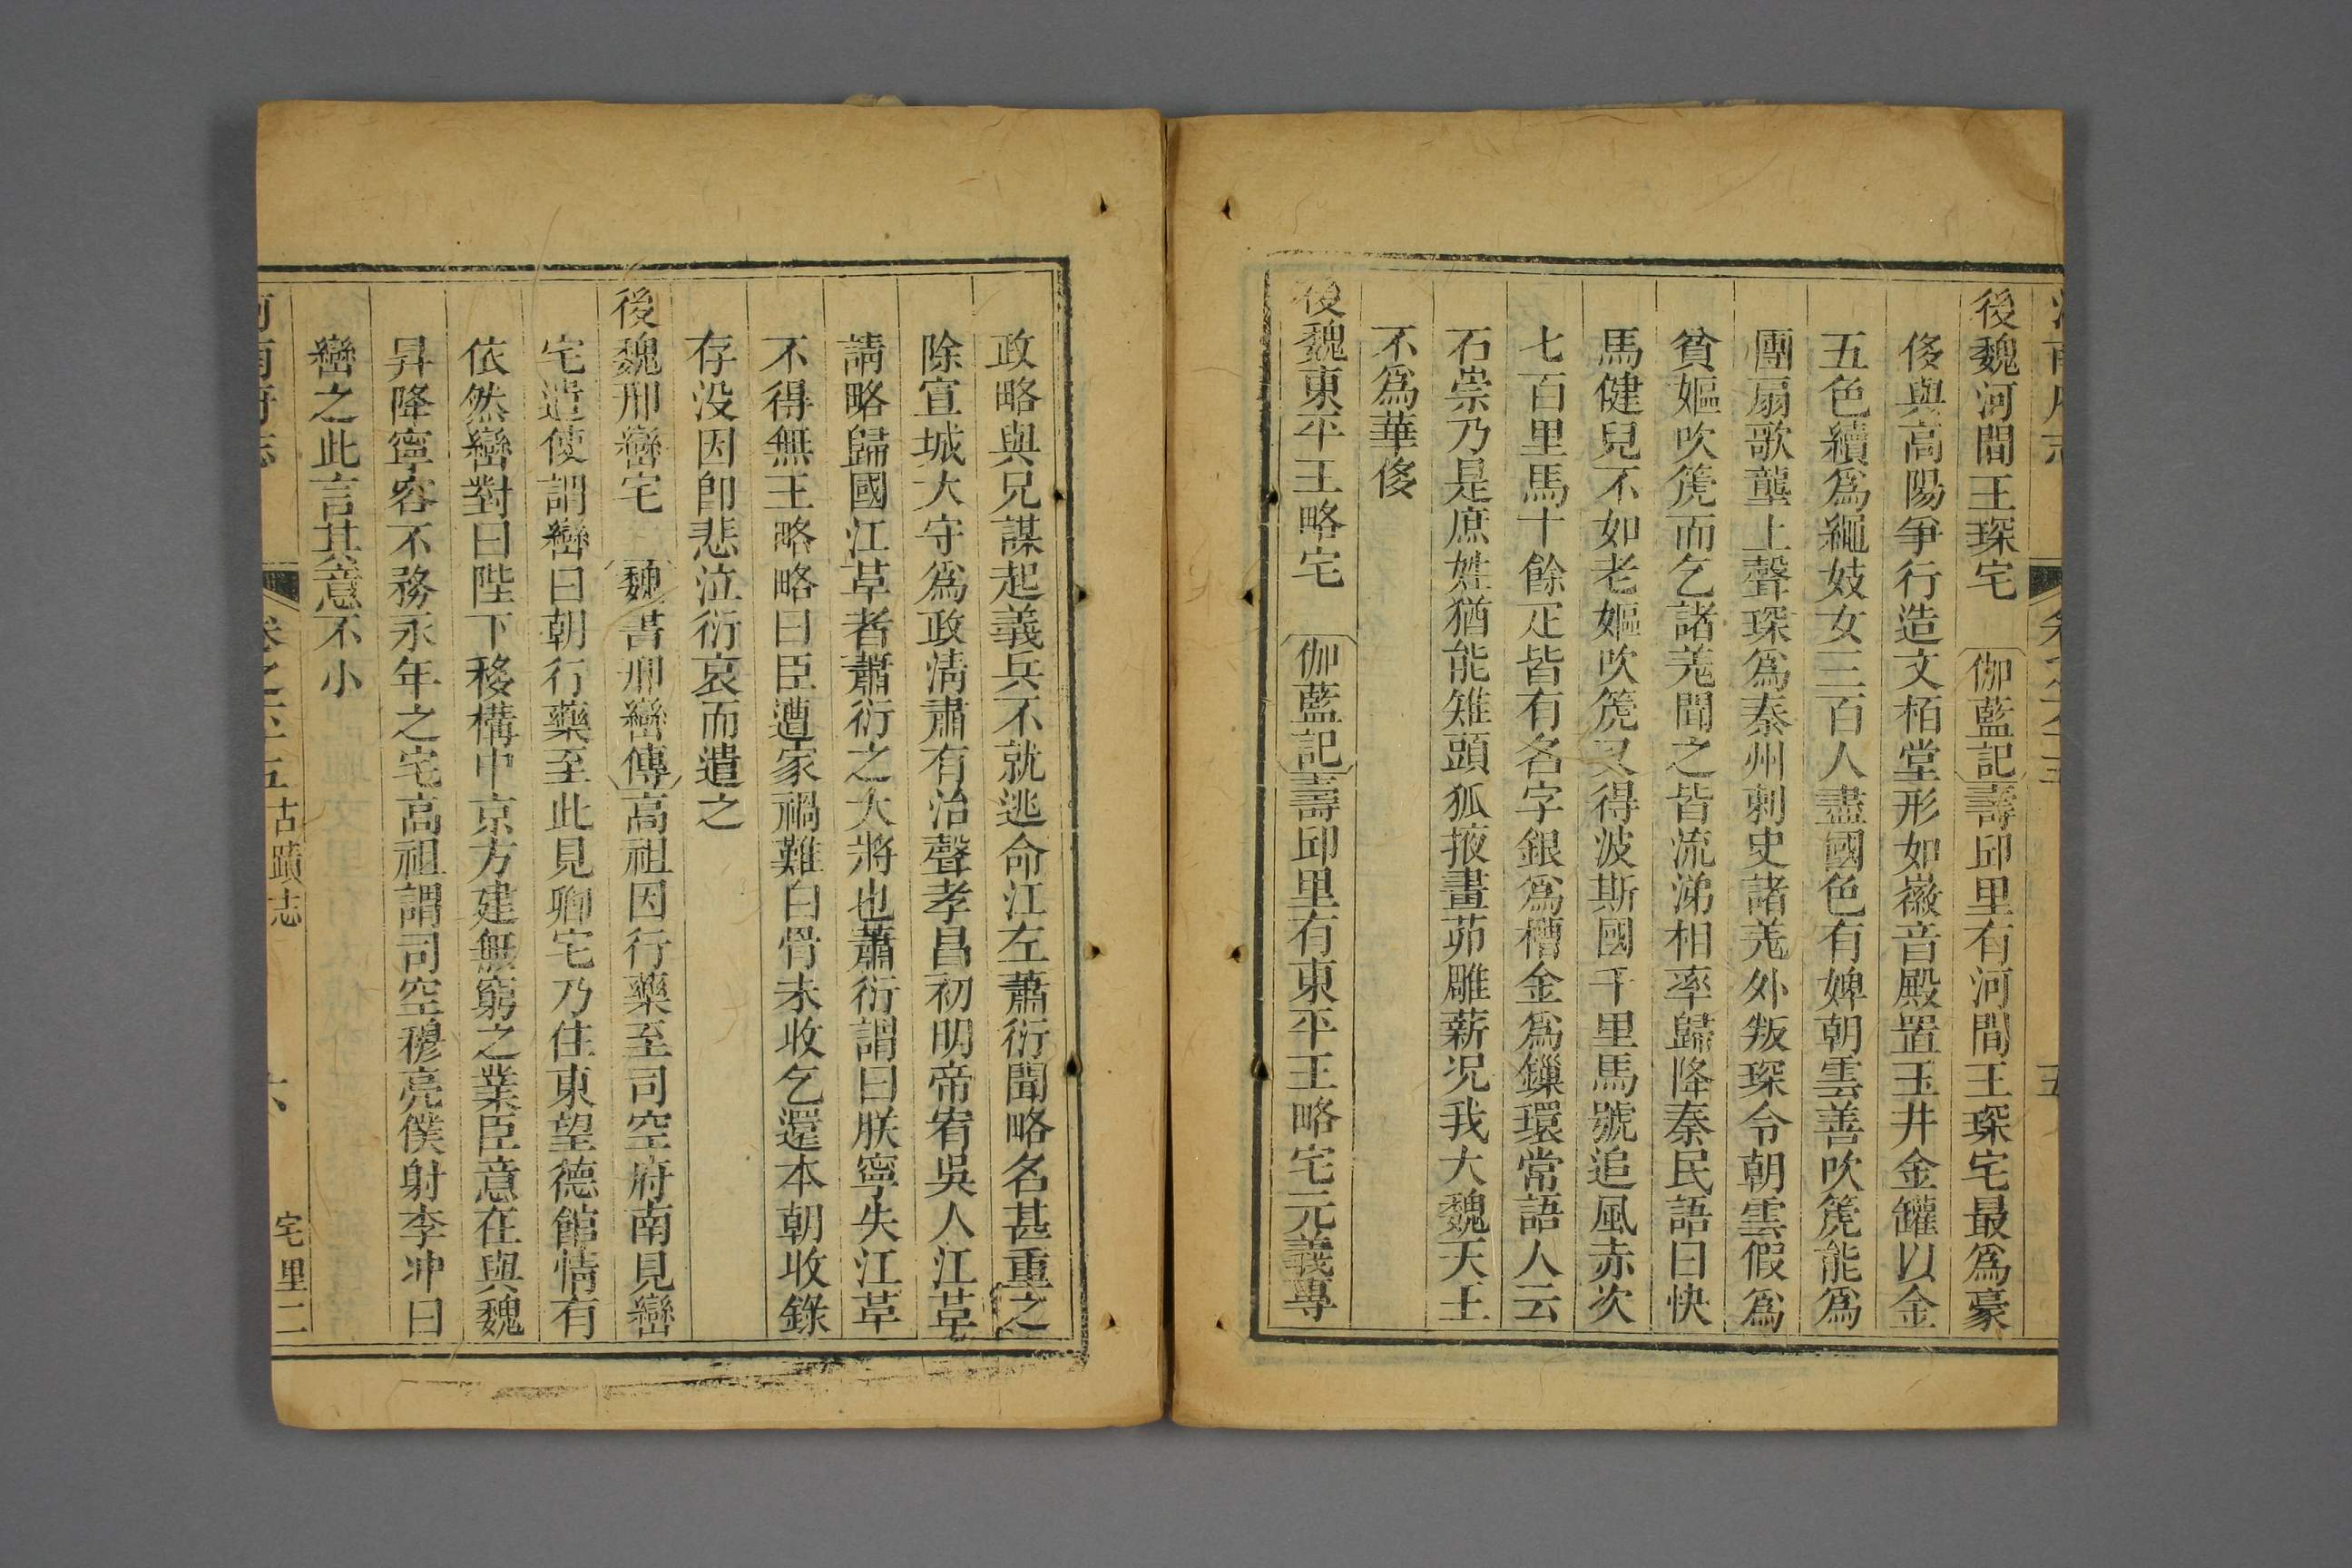 後魏河間王琛宅 伽藍記壽邱里有河間王琛宅最爲豪
侈與高陽爭行造文栢堂形如徽音殿置玉井金罐以金
五色績爲繩妓女三百人盡國色有婢朝雲善吹篪能爲
團扇歌壟上聲琛爲秦州刺史諸羌外叛琛令朝雲假爲
貧嫗吹篪而乞諸羌聞之皆流涕相率歸降秦民語曰快
馬健兒不如老嫗吹篪又得波斯國千里馬號追風赤次
七百里馬十餘疋皆有名字銀爲槽金爲鏁環常語人云
石崇乃是庶姓猶能雉頭狐掖畫茆雕薪况我大魏天王
不爲華侈
後魏東平王略宅 伽藍記壽邱里有東平王略宅元義專
政略與兄謀起義兵不就逃命江左蕭衍聞略名甚重之
除宣城大守爲政淸肅有治聲孝昌初明帝宥吳人江革
請略歸國江革者蕭衍之大將也蕭衍謂曰朕寧失江革
不得無王略略曰臣遭家禍難白骨未收乞還本朝收錄
存没因卽悲泣衍哀而遣之
後魏邢巒宅 魏書邢巒傳高祖因行藥至司空府南見巒
宅遣使謂巒曰朝行藥至此見卿宅乃住東望德館情有
依然巒對曰陛下移構中京方建無窮之業臣意在與魏
昇降寧容不務永年之宅高祖謂司空穆亮僕射李冲曰
巒之此言其意不小
河南府志 卷之五十五古蹟志 六 宅里二